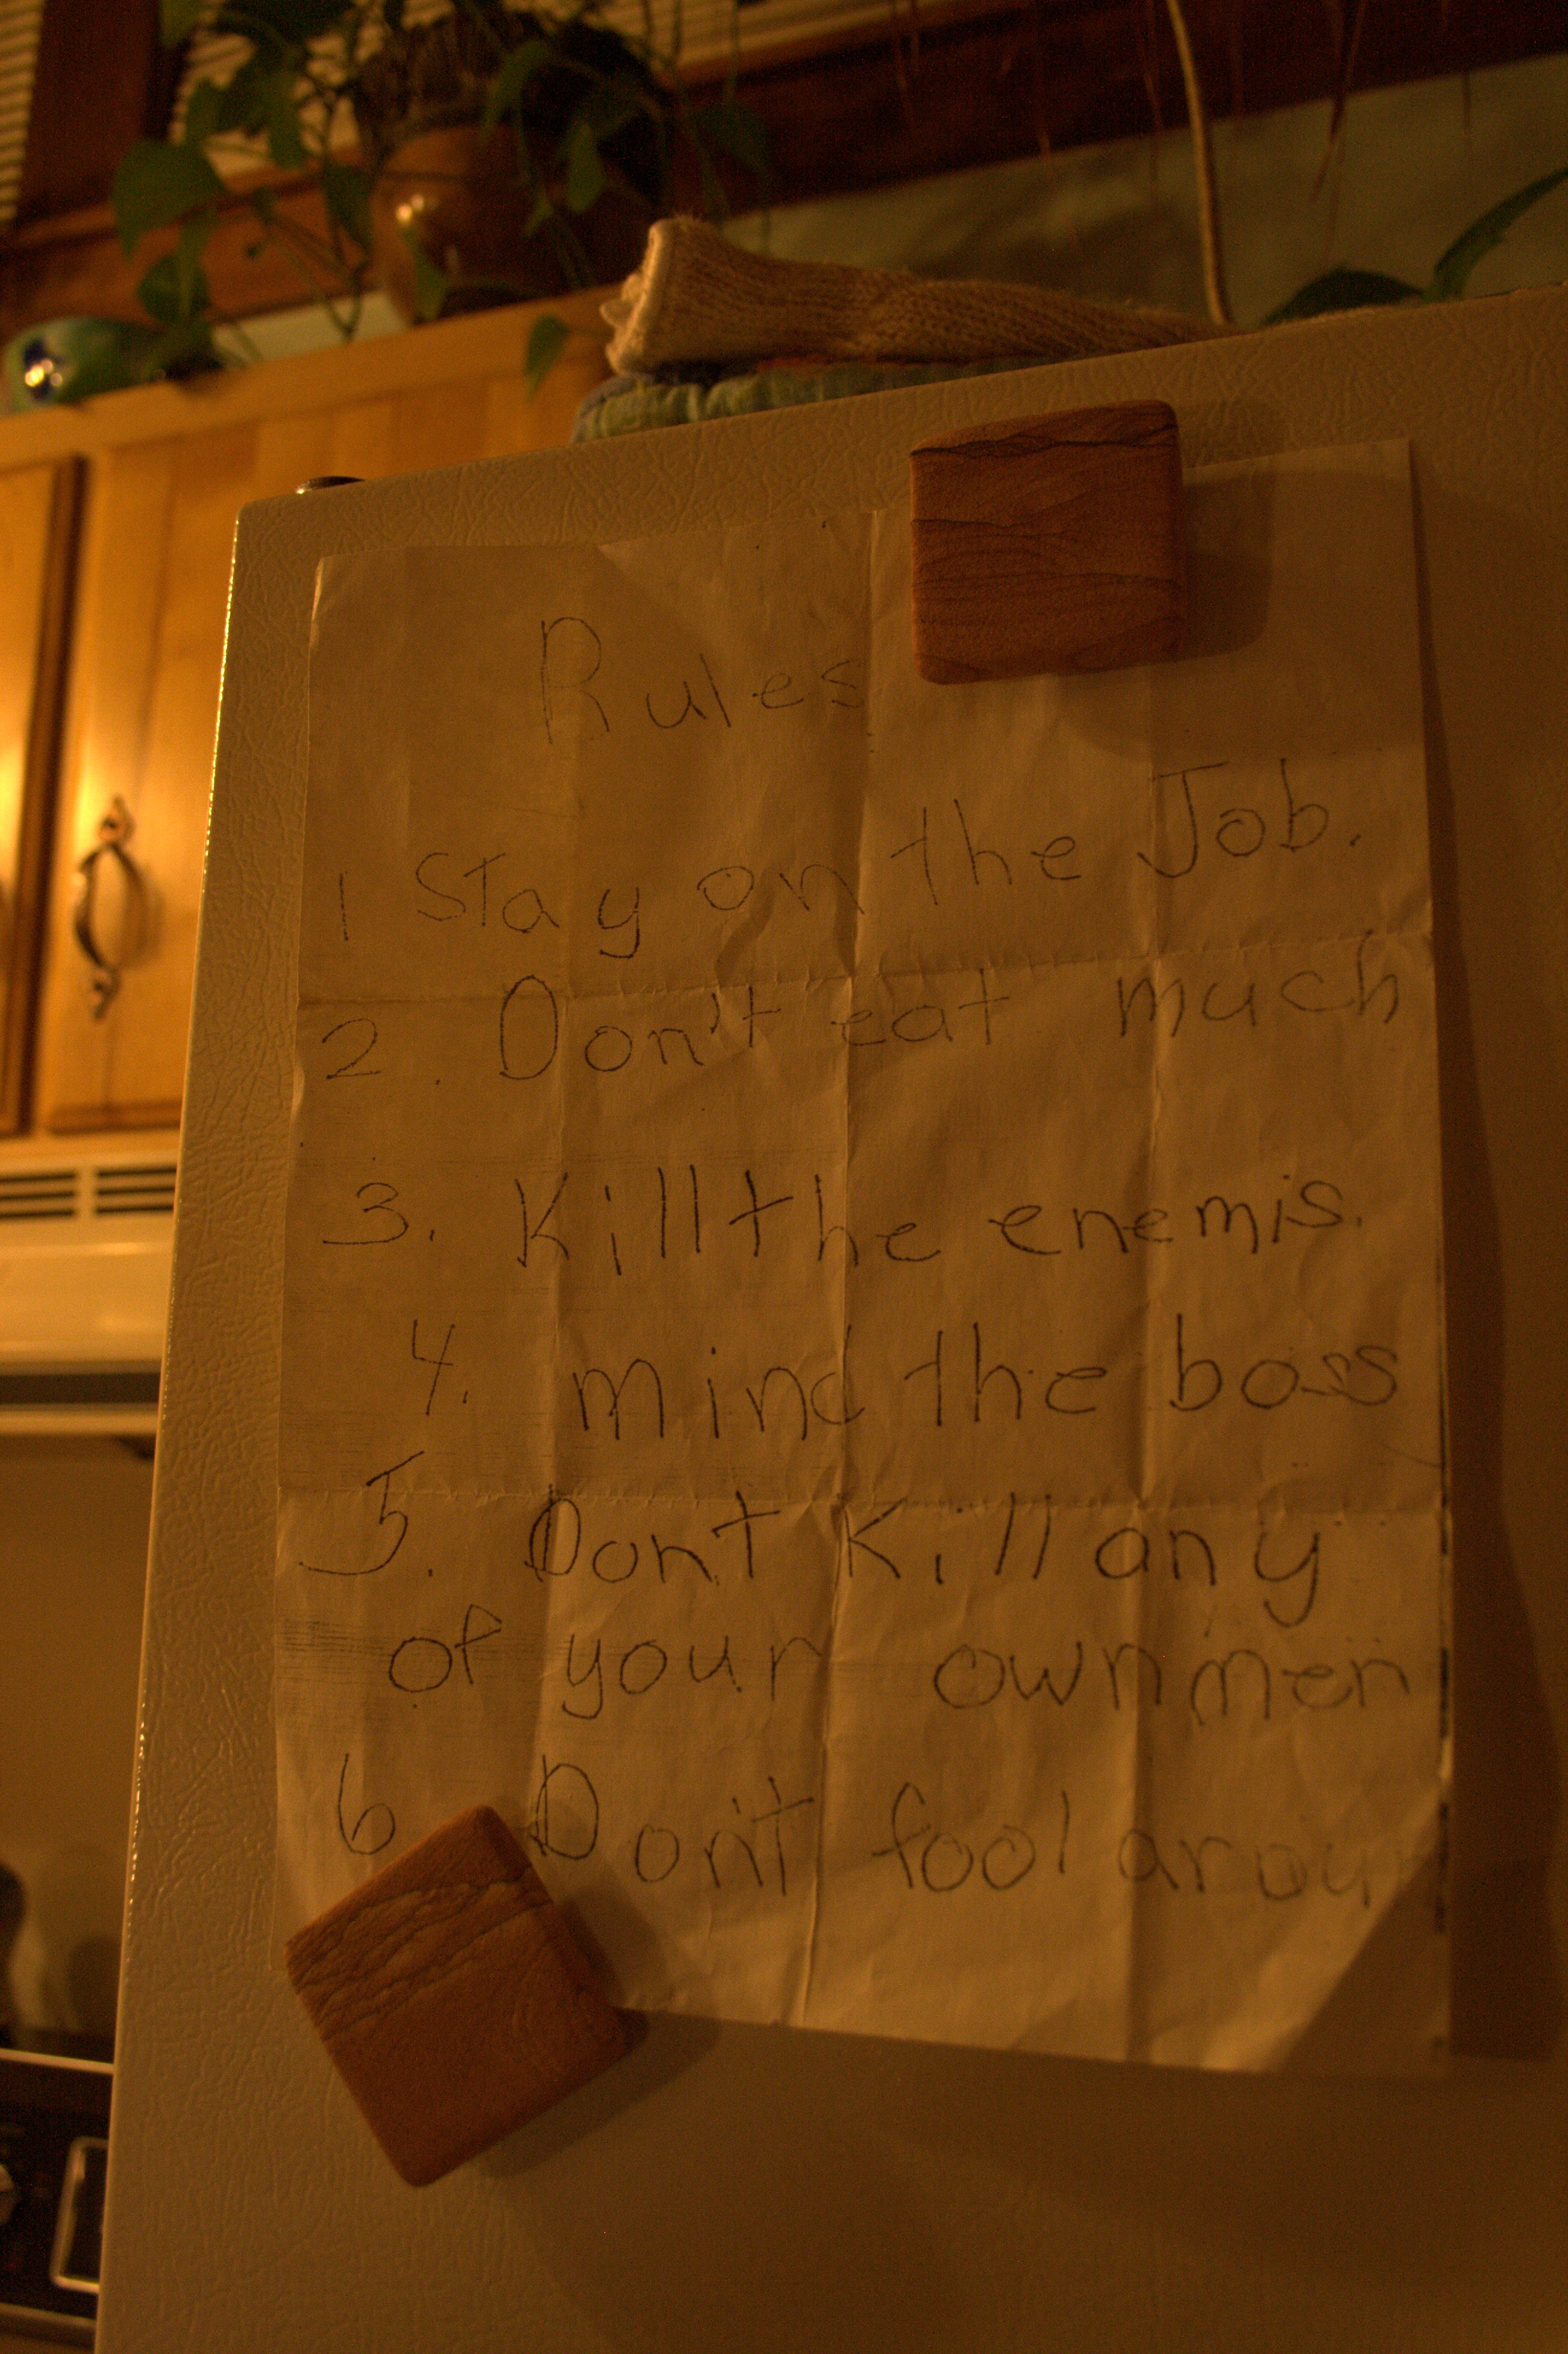 Rules
1 Stay on the Job.
2. Don't eat much
3. Kill the enemis.
4. mind the boss
5. Dont Kill any
of your own men
6 Don't fool aroun